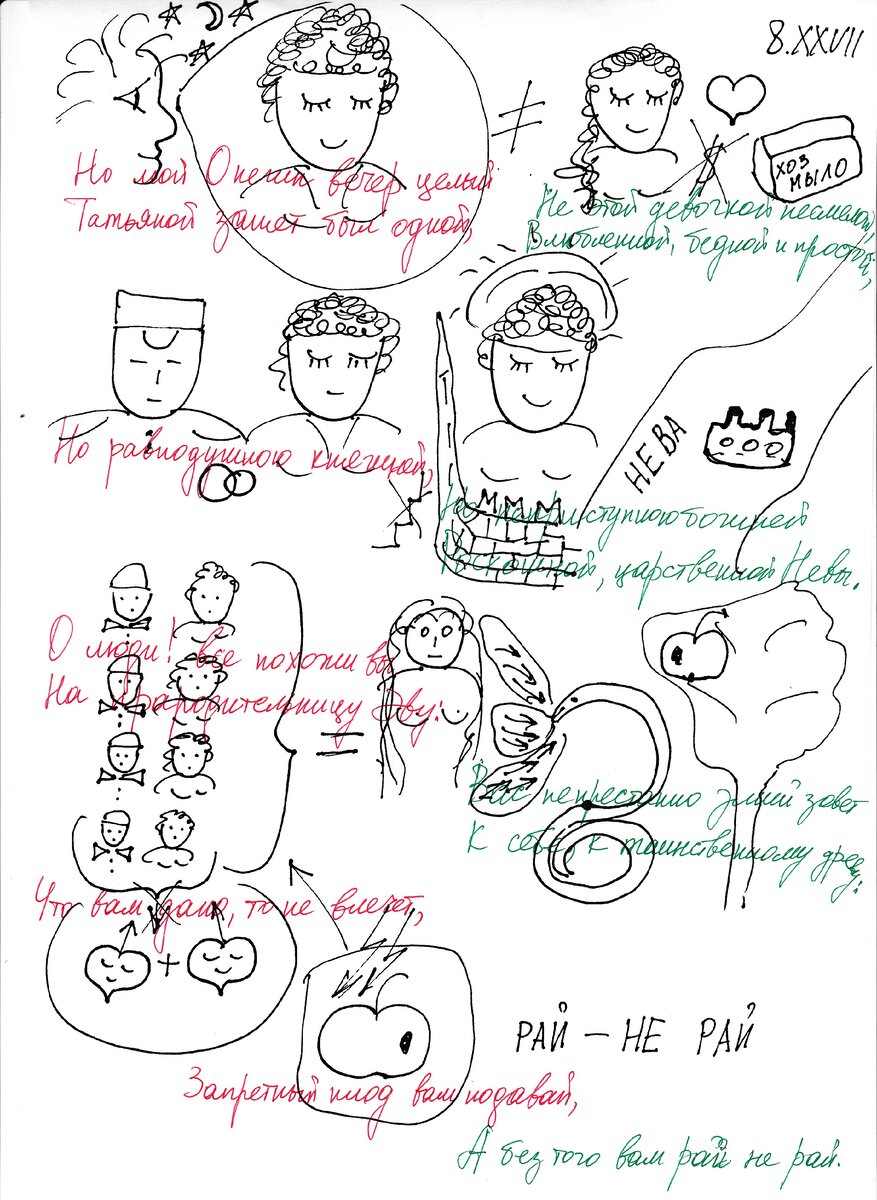 8.XXVII
Но мой Онегин вечер целый
Татьяной занят был одной,
ХОЗ
МЫЛО
Не этой девочкой несмелой,
Влюбленной, бедной и простой,
Но равнодушною княгиней,
НЕВА
Но неприступною богиней
Роскошной, царственной Невы.
О люди! все похожи вы
На прародительницу Эву:
Вас непрестанно змий зовет
К себе, к таинственному древу:
Что вам дано, то не влечет,
РАЙ – НЕ РАЙ
Запретный плод вам подавай,
А без того вам рай не рай.